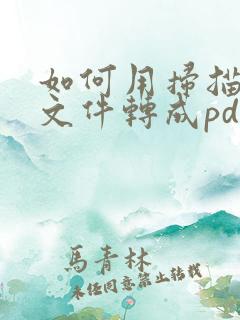 如何用掃描
文件轉成pd
馬青林
未經同意禁止轉載